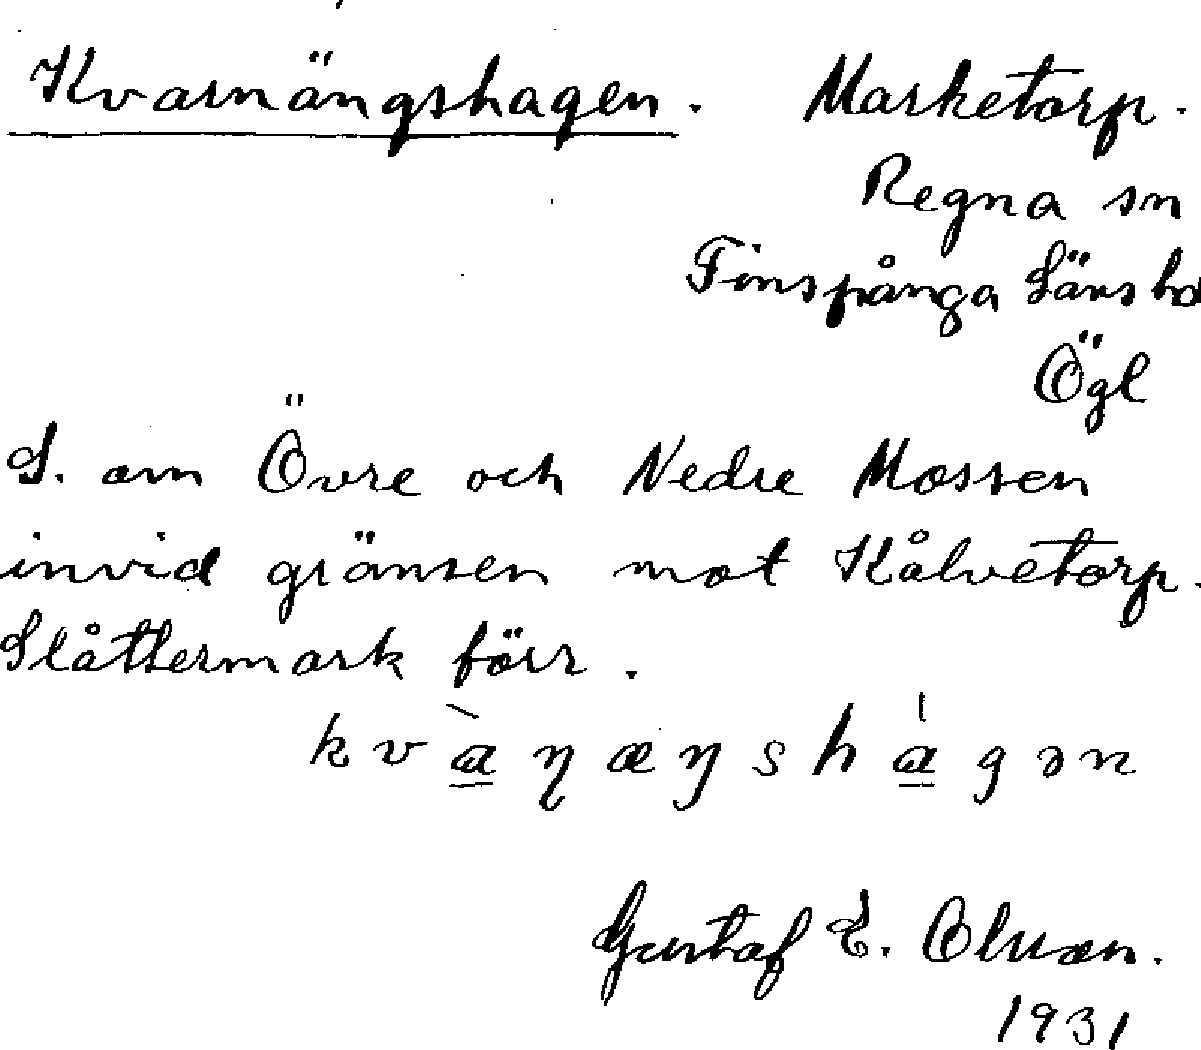 Kvarnängshagen. Marketorp.
Regna sn
Finspånga Länshd
Ögl
S. om Övre och Nedre Mossen
invid gränsen mot Kålvetorp.
Slåttermark förr.
kvàꞃæŋshágən
Gustaf E. Olsson.
1931